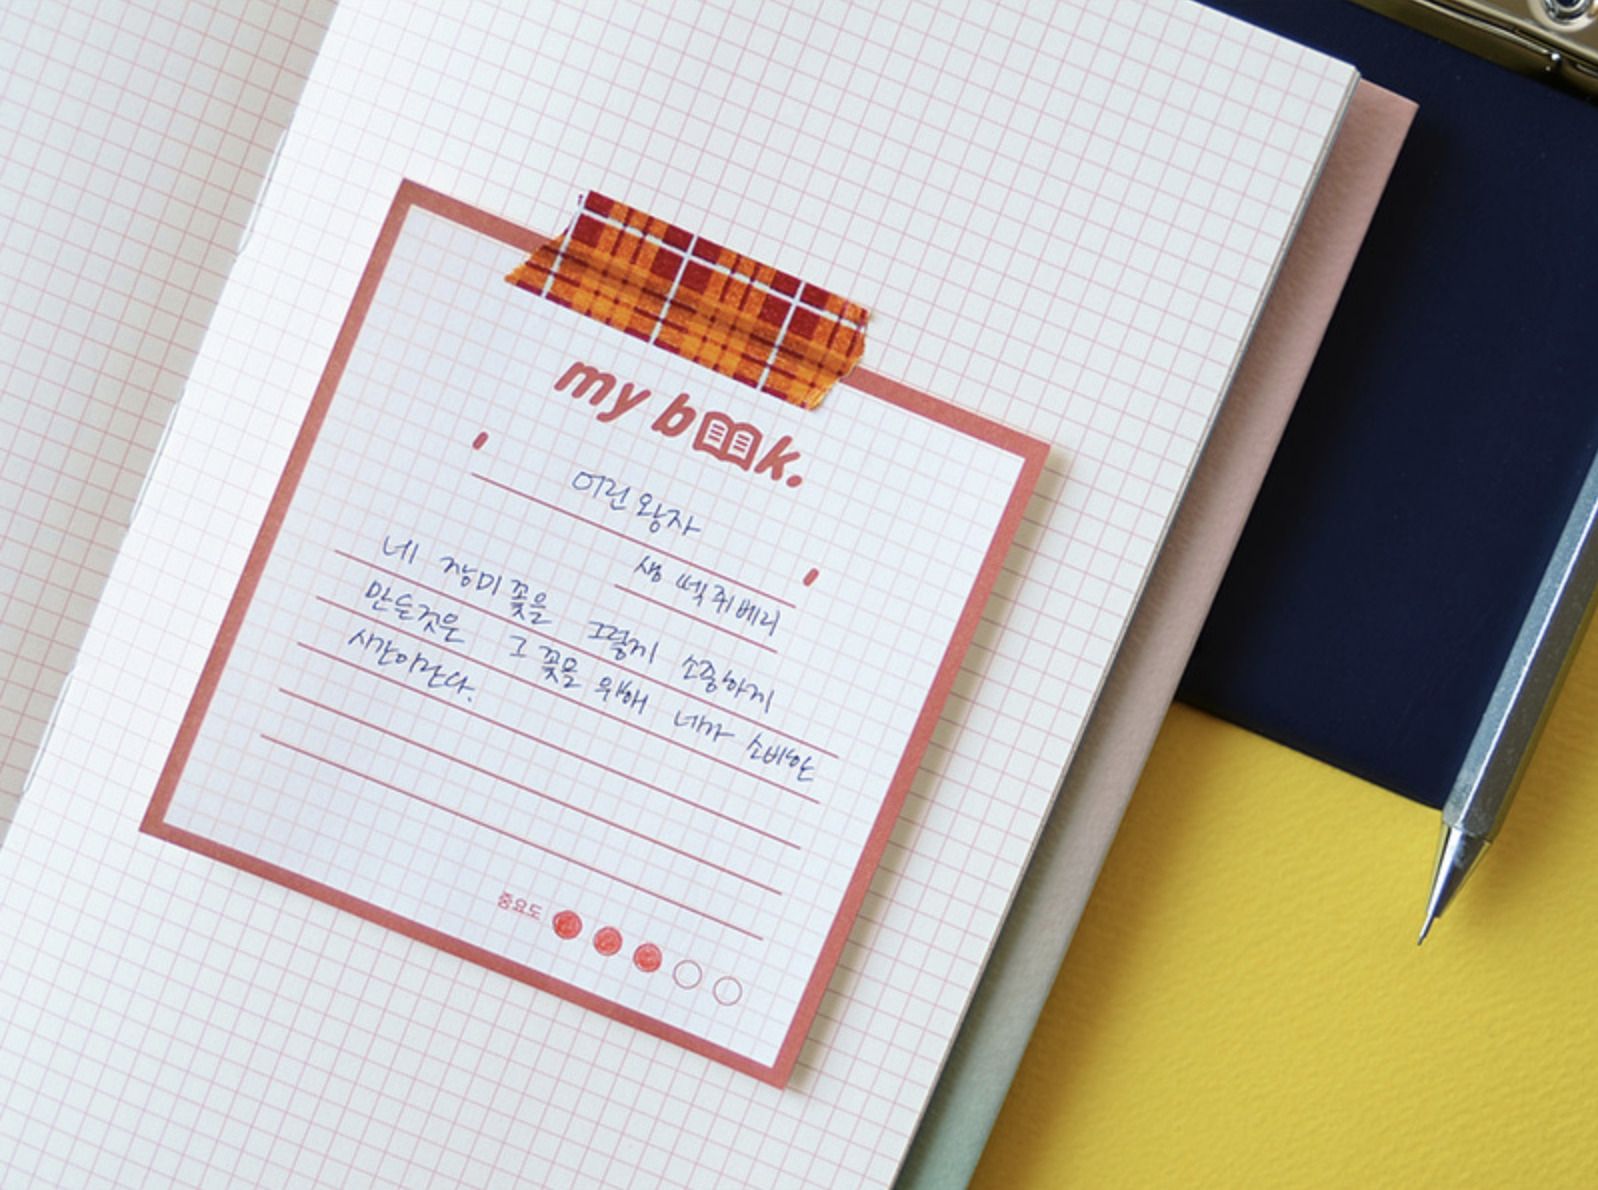 my book.
어린왕자
생 떽쥐베리
네 장미꽃을 그렇게 소중하게
만든것은 그 꽃을 위해 네가 소비한
시간이란다.
중요도